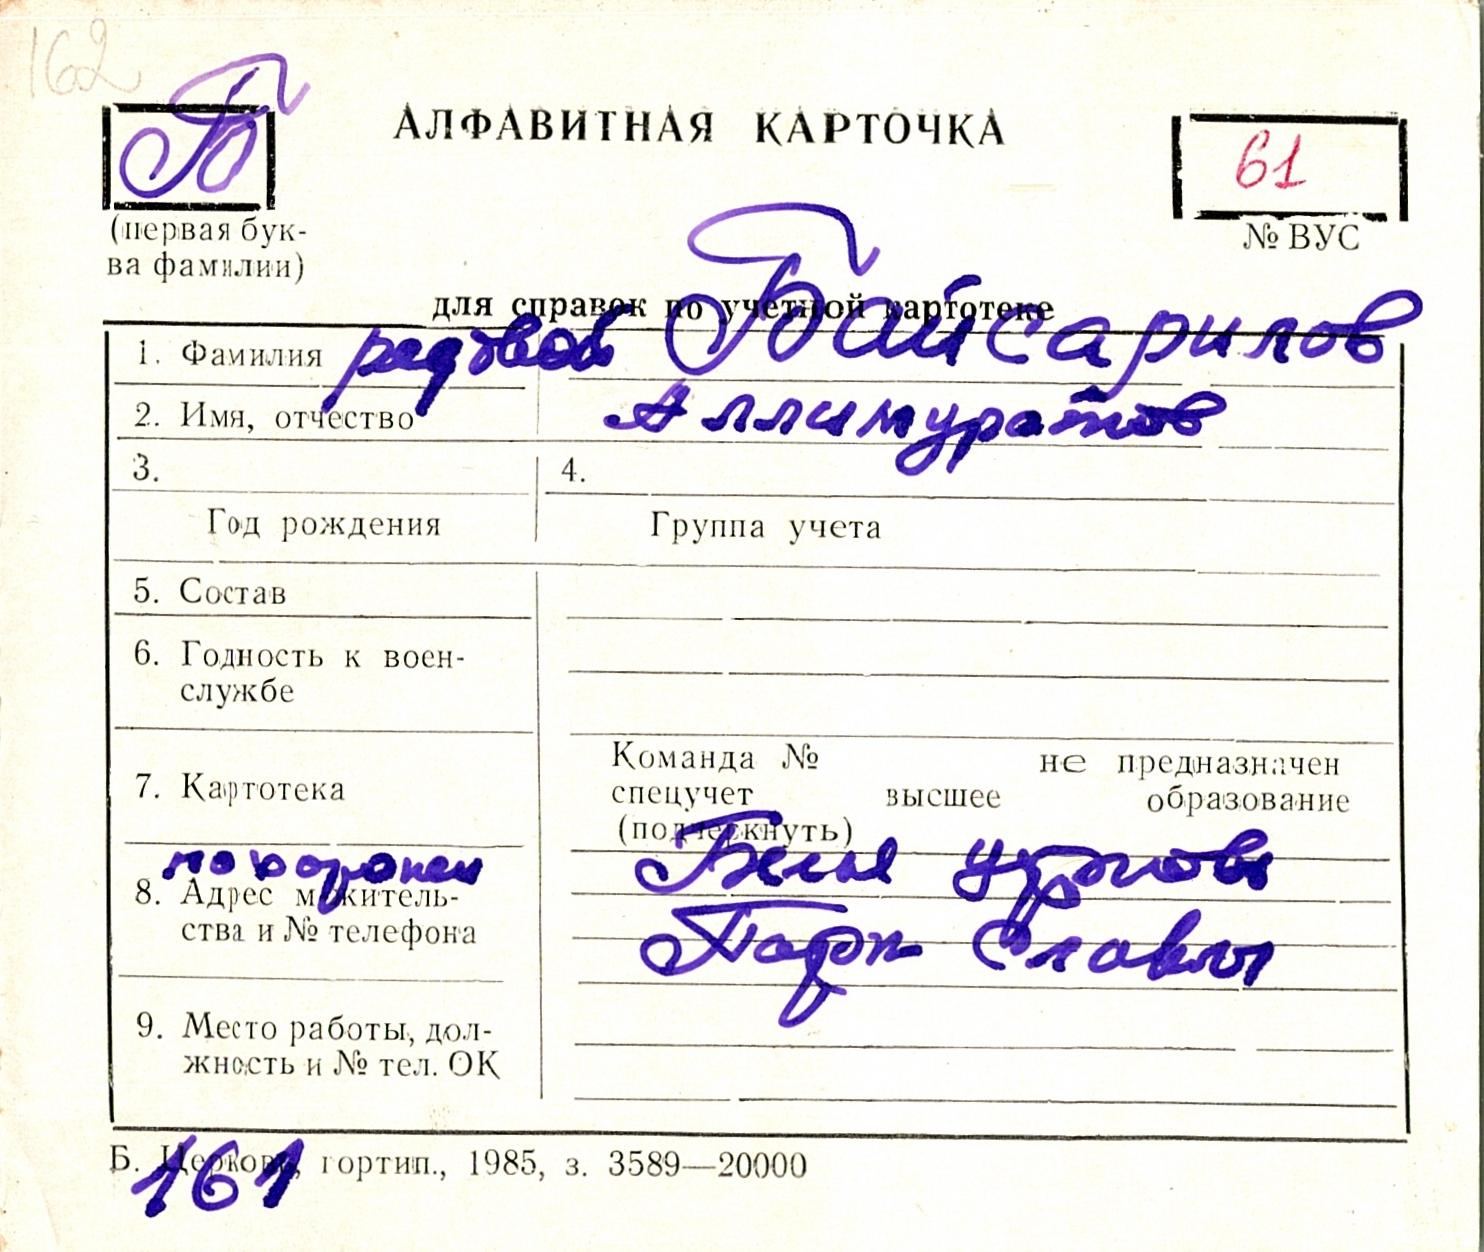 162
Б
АЛФАВИТНАЯ КАРТОЧКА
61
(первая бук-
ва фамилии)
№ ВУС
для справок по учетной картотеке
1. Фамилия рядовой Байсарилов
2. Имя, отчество Аллимуратов
3. 4.
Год рождения Группа учета
5. Состав
6. Годность к воен-
службе
7. Картотека
Команда № не предназначен
спецучет высшее образование
(подчеркнуть)
похоронен Белая Церковь
8. Адрес м. житель-
ства и № телефона
Парк Славы
9. Место работы, дол-
жность и № тел. ОК
Б. Церковь, гортип., 1985, з. 3589—20000
161